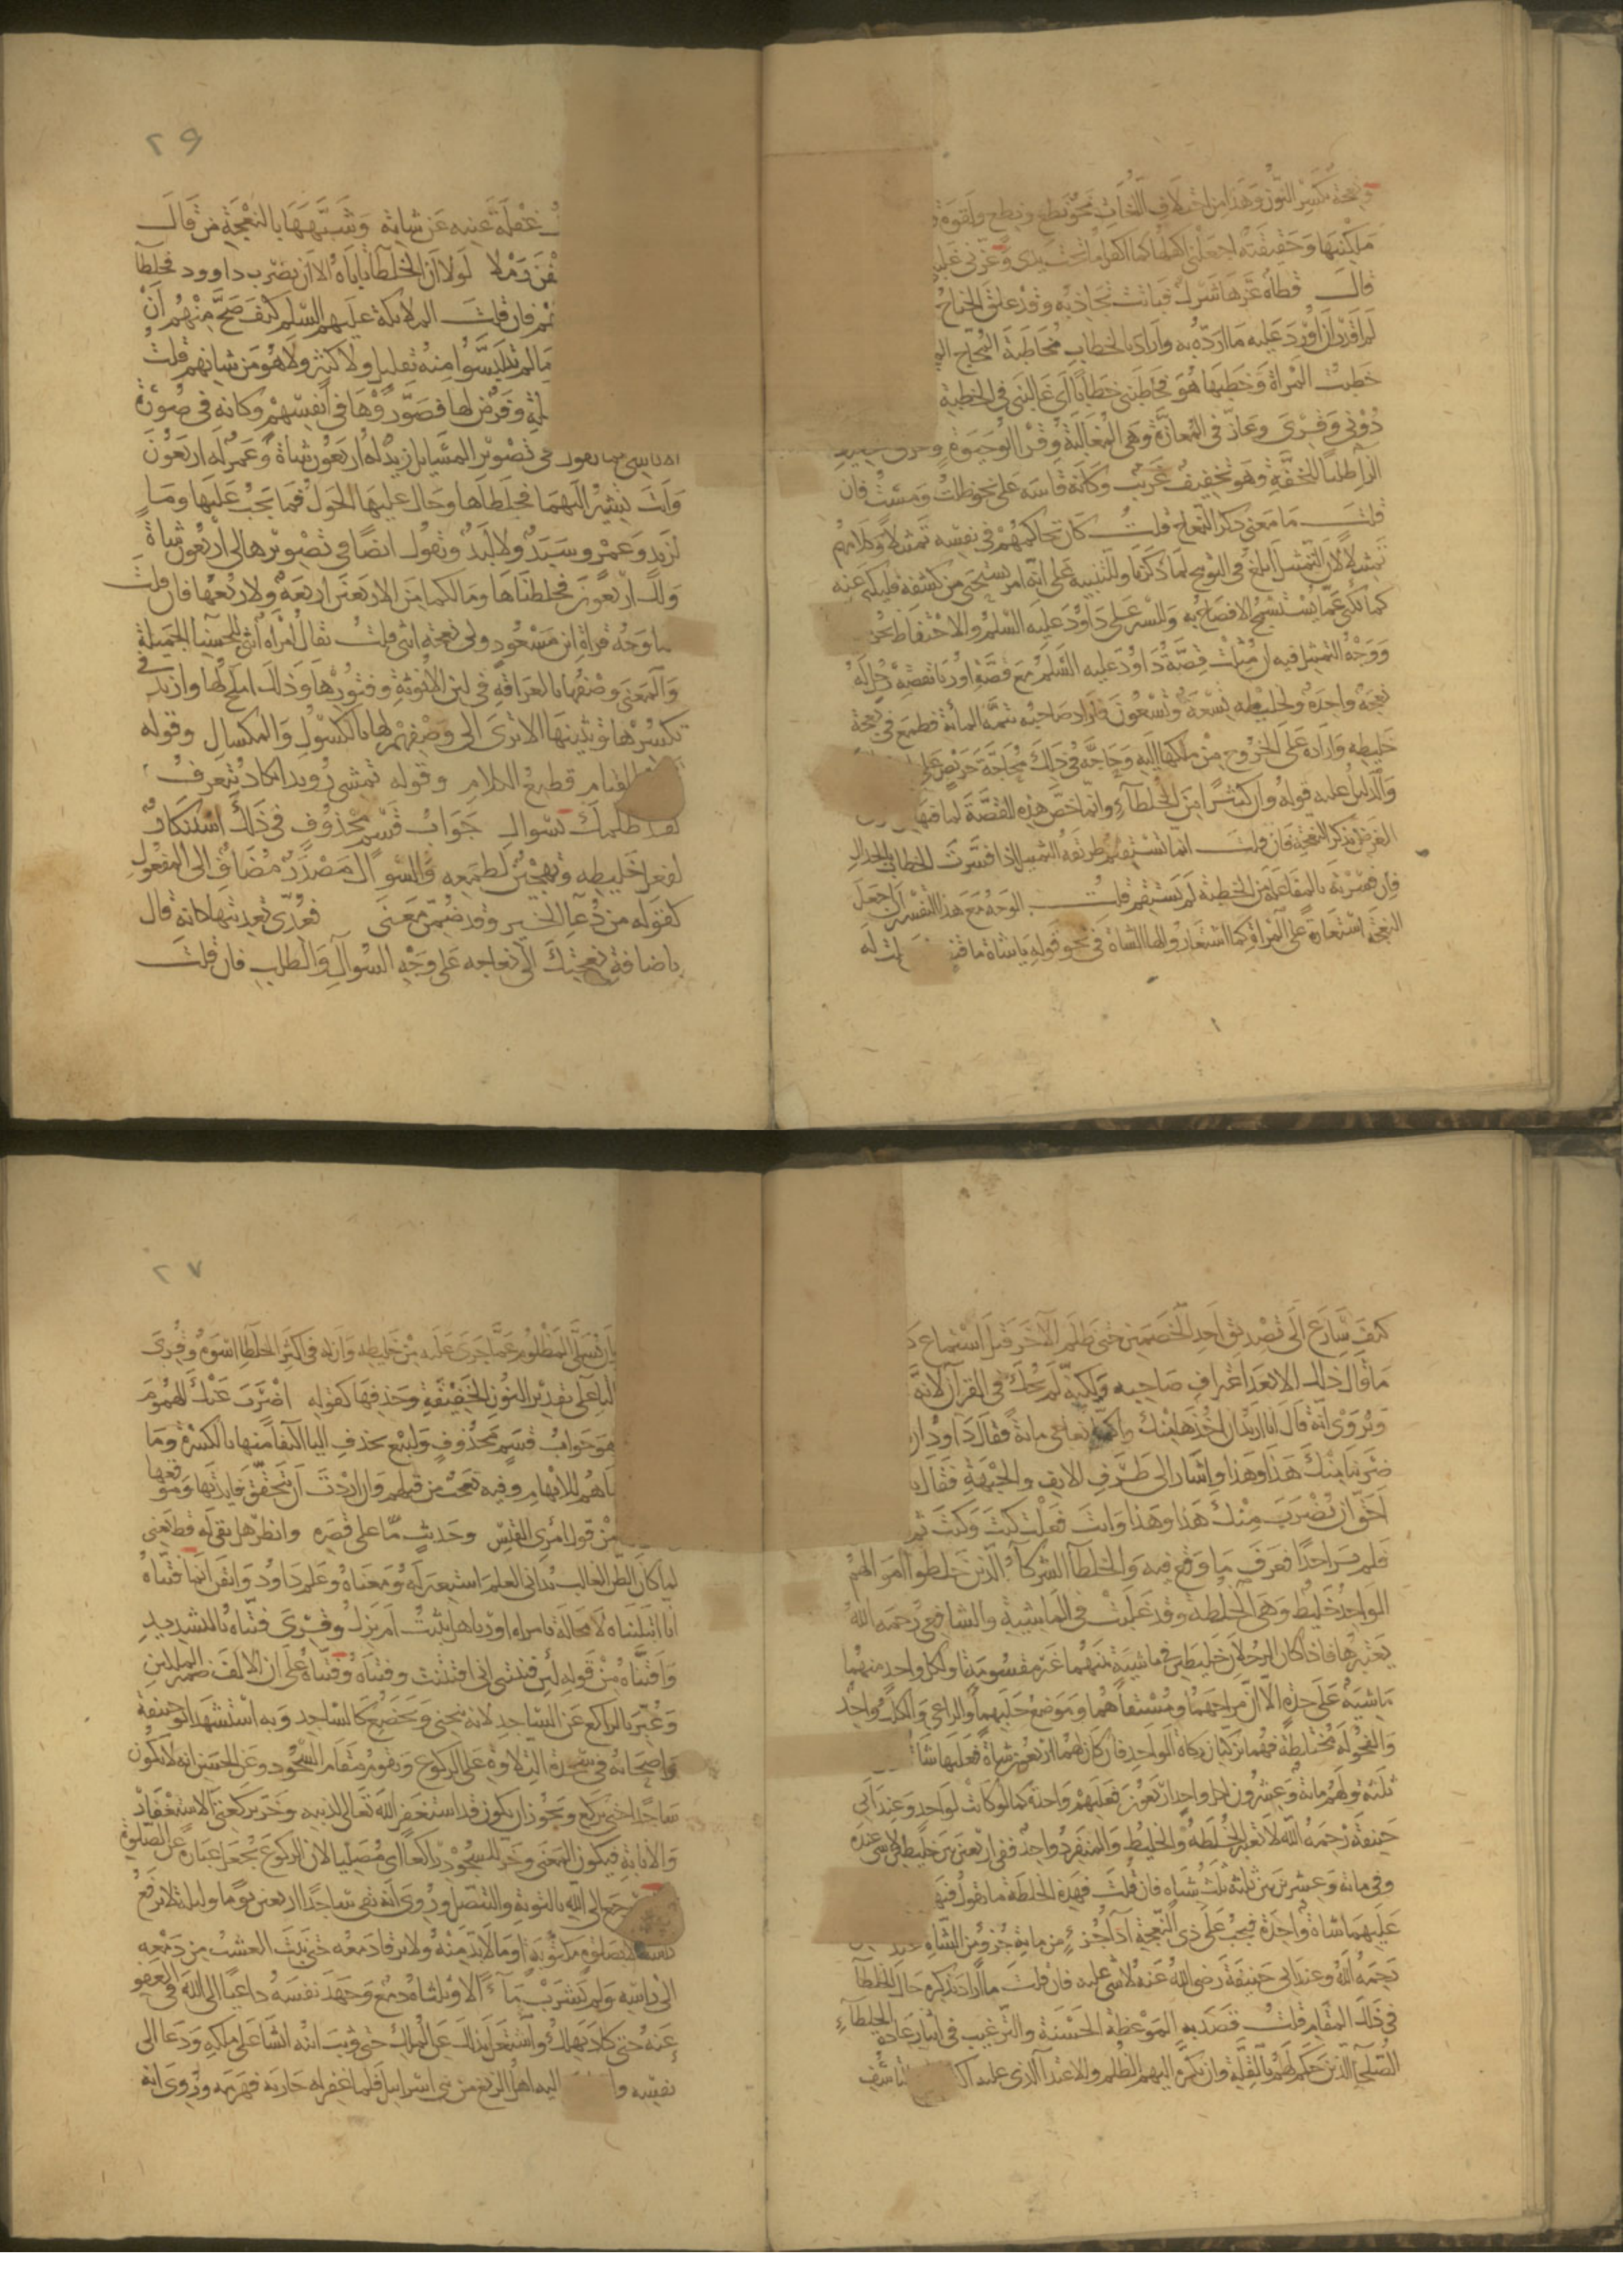 ونعجة بكسر النون وهذا من اختلاف اللغات نحو نطع ونطع ولقوة و
ملكنيها وحقيقته اجعلني اكفلها كما اكفل ما تحت يدي وعزني غلبني
قال قطاة عزها شرك فباتت تجاذبه وقد علق الجناح
لم اقدر ان اورد عليه ما ارده به واراد بالخطاب مخاطبة المحاج
خطبت المراة وخطبها هو فخاطبني خطابا اي غالبني في الخطبة
دوني وقرى وعازني من المعازة وهي المغالبة وقرا ابو حيوة وعزني بتخفيف
الزاي طلبا للخفة وهو تخفيف غريب وكانه قاسه على نحو ظلت ومست فان
قلت ما معنى ذكر النعاج قلت كان تحاكمهم في نفسه تمثيلا وكلامهم
تمثيلا لان التمثيل ابلغ في التوبيخ لما ذكرنا وللتنبيه على انه امر يستحيى من كشفه فيكنى عنه
كما يكنى عما يستسمج الافصاح به وللستر على داود عليه السلام والاحتفاظ بحر
ووجه التمثيل فيه ان مثلت قصة داود عليه السلام مع قصة اوريا بقصة رجل له
نعجة واحدة ولخليطه تسعة وتسعون فاراد صاحبه تتمة المائة فطمع في نعجة
خليطه واراده على الخروج من ملكها اليه وحاجه في ذلك محاجة حريص على
والدليل عليه قوله وان كثيرا من الخلطاء وانما خص هذه القصة لما فيها
الغرض بذكر النعجة فان قلت انما تستقيم طريقة التمثيل اذا فسرت الخطاب بالجدال
فان فسرته بالمفاعلة من الخطبة لم يستقم قلت الوجه مع هذا التفسير ان اجعل
النعجة استعارة عن المراة كما استعاروا لها الشاة في نحو قوله يا شاة ما قنص لمن حلت له
٢٩
غفلة عينه عن شاته وشبهها بالنعجة من قال
لولا ان الخلطاء تاباه الا ان يضرب داوود فخلطا
فان قلت الملائكة عليهم السلام كيف صح منهم ان
ما لم يتلبسوا منه بقليل ولا كثير ولا هو من شانهم قلت
لة وفرض لها فصوروها في انفسهم وكانه في صورة
في تصوير المسايل زيد له اربعون شاة وعمر له اربعون
وانت تشير اليهما فخلطاها وحال عليها الحول فما يجب عليها وما
لزيد وعمرو سبد ولا لبد وتقول ايضا في تصويرها لي اربعون شاة
ولك اربعون فخلطناها وما لكما من الاربعين اربعة ولا ربعها فان قلت
ما وجه قراة ابن مسعود ولي نعجة انثى قلت يقال امراة انثى للحسناء الجميلة
والمعنى وصفها بالعراقة في لين الانوثة وفتورها وذلك املح لها وازيد في
تكسرها وتثنيها الا ترى الى وصفهم لها بالكسول والمكسال وقوله
القيام قطيع الكلام وقوله تمشي رويدا تكاد تنغرف
لقد ظلمك بسوال جواب قسم محذوف في ذلك استنكار
لفعل خليطه وتهجين لطمعه والسوال مصدر مضاف الى المفعول
كقوله من دعاء الخير وقد ضمن معنى فعدي تعديتها كانه قال
باضافة نعجتك الى نعاجه على وجه السوال والطلب فان قلت
كيف سارع الى تصديق احد الخصمين حتى ظلم الآخر قبل استماع
ما قال ذلك الا بعد اعتراف صاحبه ولكنه لم يحك في القرآن لانه
ويروى انه قال انا اريد ان اخذها منك واكمل نعاجي مائة فقال داود ان
ضربنا منك هذا وهذا واشار الى طرف الانف والجبهة فقال يا
احق ان يضرب منك هذا وهذا وانت فعلت كيت وكيت ثم
فلم ير احدا فعرف ما وقع فيه والخلطاء الشركاء الذين خلطوا اموالهم
الواحد خليط وهي الخلطة وقد غلبت في الماشية والشافعي رحمه الله
يعتبرها فاذا كان الرجلان خليطين في ماشية بينهما غير مقسومة او لكل واحد منهما
ماشية على حدة الا ان مراحهما ومستقاهما وموضع حلبهما والراعي والكلب واحد
والفحولة مختلطة فهما يزكيان زكاة الواحد فان كان لهما اربعون شاة فعليهما شاة
ثلثة ولهم مائة وعشرون لكل واحد اربعون فعليهم واحدة كما لو كانت لواحد وعند ابي
حنيفة رحمه الله لا تعتبر الخلطة والخليط والمنفرد واحد ففي اربعين بين خليطين لا شي عنده
وفي مائة وعشرين بين ثلثة ثلث شياه فان قلت فهذه الخلطة ما تقول فيها
عليهما شاة واحدة فيجب على ذي النعجة اداء جزء من مائة جزء من الشاة عند
رحمه الله وعند ابي حنيفة رضي الله عنه لا شي عليه فان قلت ماذا اراد بذكره حال الخلطاء
في ذلك المقام قلت قصد به الموعظة الحسنة والترغيب في ايثار عادة الخلطاء
الصلحاء الذين حكم لهم بالقلة وان يكره اليهم الظلم والاعتداء الذي عليه
٢٧
وان يسلي المظلوم عما جرى عليه من خليطه وان له في اكثر الخلطاء اسوة وقرى
الياء على تقدير النون الخفيفة وحذفها كقوله اضرب عنك الهموم
هو جواب قسم محذوف وليبغ بحذف الياء اكتفاء منها بالكسرة وما
ما هم للابهام وفيه تعجب من قلتهم وان اردت ان تتحقق فايدتها وموقعها
من قول امرى القيس وحديث ما على قصره وانظر هل بقي له قط معنى
لما كان الظن الغالب يداني العلم استعير له ومعناه وعلم داود وايقن انما فتناه
انا ابتليناه لا محالة بامراة اوريا هل يثبت ام يزل وقرى فتناه بالتشديد
وافتناه من قوله لئن فتنتني لهي بالامس افتنت وفتناه وفتناه على ان الالف ضمير الملكين
وعبر بالراكع عن الساجد لانه ينحني ويخضع كالساجد وبه استشهد ابو حنيفة
واصحابه في سجدة التلاوة على ان الركوع يقوم مقام السجود وعن الحسن انه لا يكون
ساجدا حتى يركع ويجوز ان يكون قد استغفر الله تعالى لذنبه وخر بركعتي الاستغفار
والانابة فيكون المعنى وخر للسجود راكعا اي مصليا لان الركوع يجعل عبارة عن الصلوة
رجع الى الله بالتوبة والتنصل وروى انه بقي ساجدا اربعين يوما وليلة لا يرفع
راسه الا لصلوة مكتوبة او ما لابد منه ولا يرقا دمعه حتى نبت العشب من دمعه
الى راسه ولم يشرب ماء الا وثلثاه دمع وجهد نفسه داعيا الى الله في العفو
عنه حتى كاد يهلك واشتغل بذلك عن الملك حتى وثب ابنه ايشا على ملكه ودعا الى
نفسه اليه اهل الزيغ من بني اسرائيل فلما غفر له حاربه فهزمه وروى انه